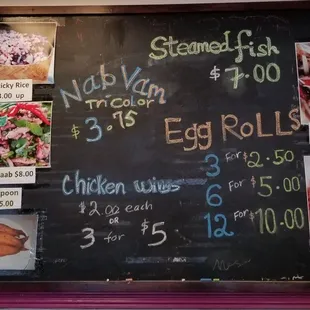 Steamed fish
$7.00
Nab Vam
Tri color
$3.75
Egg Rolls
3 for $2.50
6 for $5.00
12 for $10.00
Chicken wings
$2.00 each
or
3 for $5
icky Rice
up
aab $8.00
poon
5.00